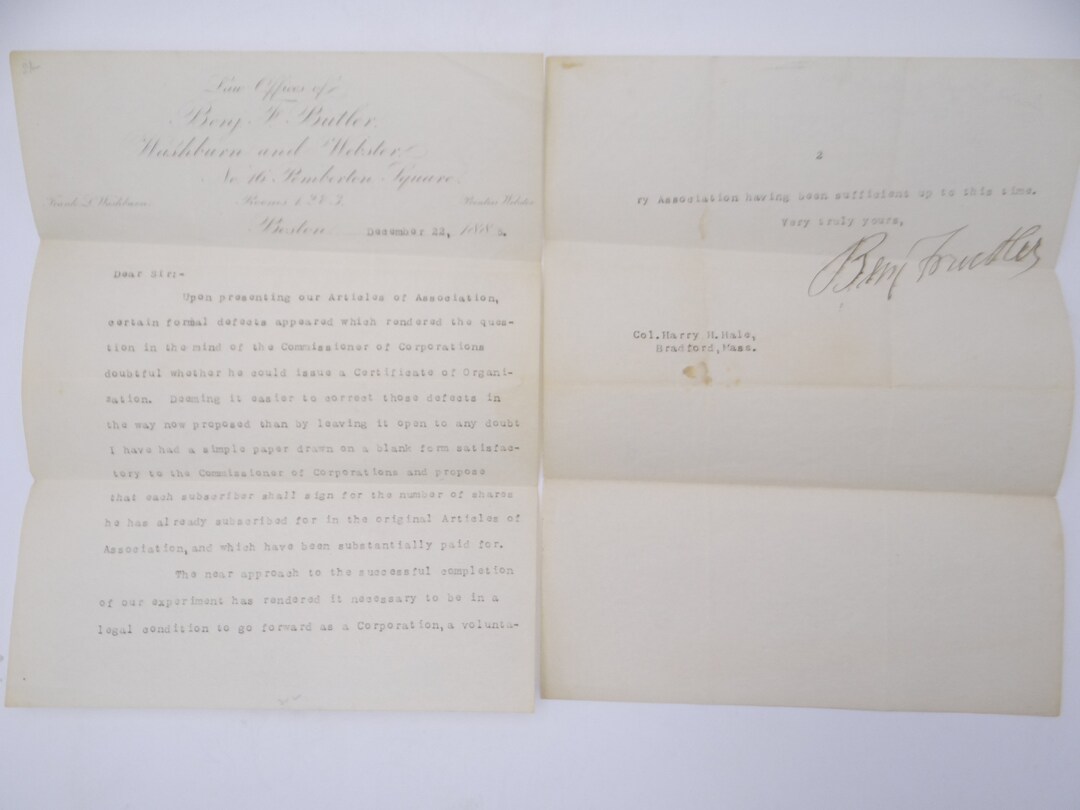 Law Offices of
Benj. F. Butler.
Washburn and Webster.
No 16 Pemberton Square.
Frank L. Washburn. Rooms 6 & 7. Prentiss Webster
Boston December 22, 188
Dear Sir:-
Upon presenting our Articles of Association,
certain formal defects appeared which rendered the ques-
tion in the mind of the Commissioner of Corporations
doubtful whether he could issue a Certificate of Organi-
zation. Deeming it easier to correct those defects in
the way now proposed than by leaving it open to any doubt
I have had a simple paper drawn on a blank form satisfac-
tory to the Commissioner of Corporations and propose
that each subscriber shall sign for the number of shares
he has already subscribed for in the original Articles of
Association, and which have been substantially paid for.
The near approach to the successful completion
of our experiment has rendered it necessary to be in a
legal condition to go forward as a Corporation, a volunta-
2
ry Association having been sufficient up to this time.
Very truly yours,
Benj F Butler
Col. Harry H. Hale,
Bradford, Mass.